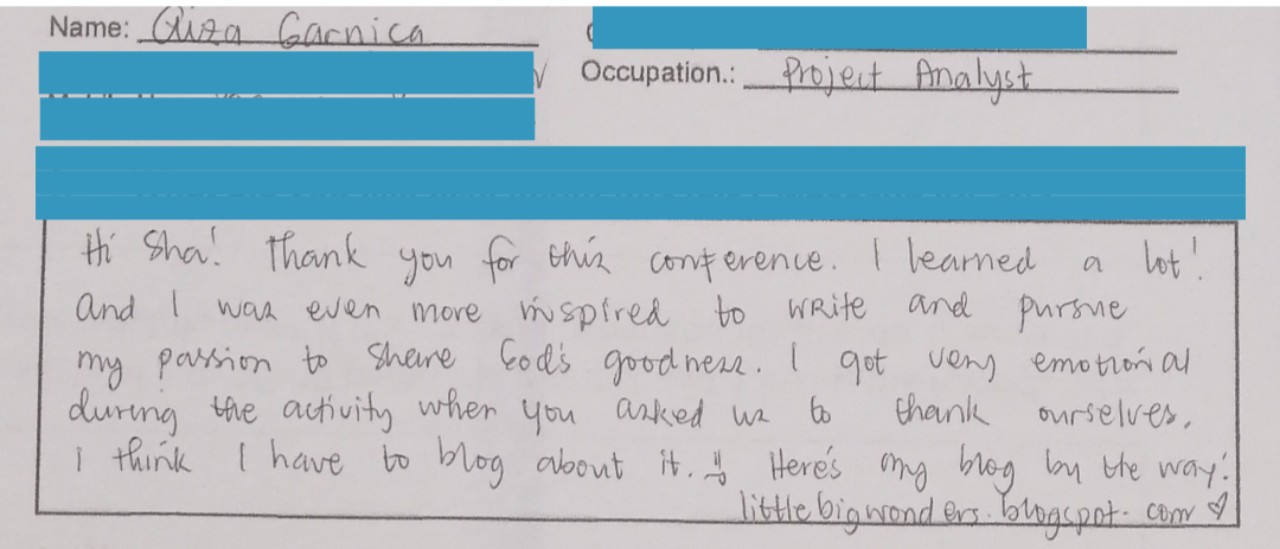 Name: Aiza Garnica
Occupation.: Project Analyst
Hi Sha! Thank you for this conference. I learned a lot!
And I was even more inspired to write and pursue
my passion to share God's goodness. I got very emotional
during the activity when you asked us to thank ourselves.
I think I have to blog about it. :) Here's my blog by the way!
littlebigwonders.blogspot.com ♡